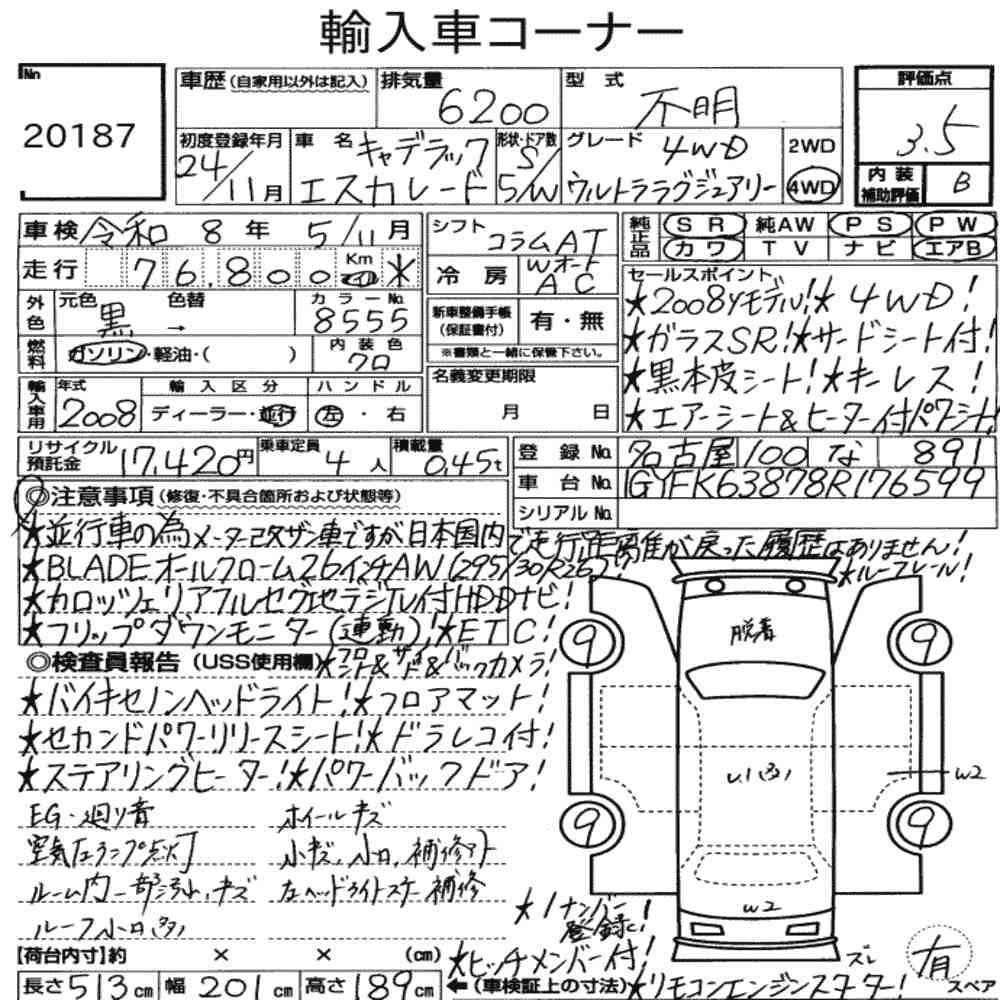 輸入車コーナー
No
20187
車歴 (自家用以外は記入)
排気量 6200
型式 不明
評価点
3.5
初度登録年月 24/11月
車名 キャデラック
エスカレード
形状・ドア数 S/5/W
グレード 4WD
ウルトララグジュアリー
2WD
4WD
内装
補助評価 B
車検 令和 8年 5/11月
走行 76,800 Km *
シフト コラムAT
冷房 Wオート
AC
純正品 SR 純AW PS PW
カワ TV ナビ エアB
外色 元色 黒 色替 →
カラーNo. 8555
燃料 ガソリン・軽油・( )
内装色 クロ
新車整備手帳
(保証書付)
有・無
※書類と一緒に保管下さい。
セールスポイント
★2008yモデル!★4WD!
★ガラスSR!★サードシート付!
★黒本皮シート!★キーレス!
★エアーシート&ヒーター付パワーシート!
輸入車用 年式 2008
輸入区分 ディーラー・並行
ハンドル 左・右
名義変更期限
月 日
リサイクル
預託金 17,420円
乗車定員 4人
積載量 0.45t
登録No. 名古屋 100 な 891
車台No. 1GYFK63878R176599
シリアルNo.
◎注意事項 (修復・不具合箇所および状態等)
★並行車の為メーター改ザン車ですが日本国内で走行距離が戻った履歴はありません!
★BLADEオールクローム26インチAW(295/30R26)!
★ルーフレール!
★カロッツェリアフルセグ地デジTV付HDDナビ!
★フリップダウンモニター(連動)!★ETC!
◎検査員報告 (USS使用欄)
★フロント&サイド&バックカメラ!
★バイキセノンヘッドライト!★フロアマット!
★セカンドパワーリリースシート!★ドラレコ付!
★ステアリングヒーター!★パワーバックドア!
EG・廻り音 ホイールキズ
空気圧ランプ点灯 小キズ、小凹、補修アト
ルーム内一部汚れ、キズ 左ヘッドライトステー補修
ルーフ小凹(多)
脱着
9
9
9
9
U1(多)
W2
W2
★1ナンバー
登録!
★ヒッチメンバー付!
【荷台内寸】約 × × (cm)
長さ513cm 幅201cm 高さ189cm
←(車検証上の寸法)
★リモコンエンジンスターター!
スレ
有
スペア